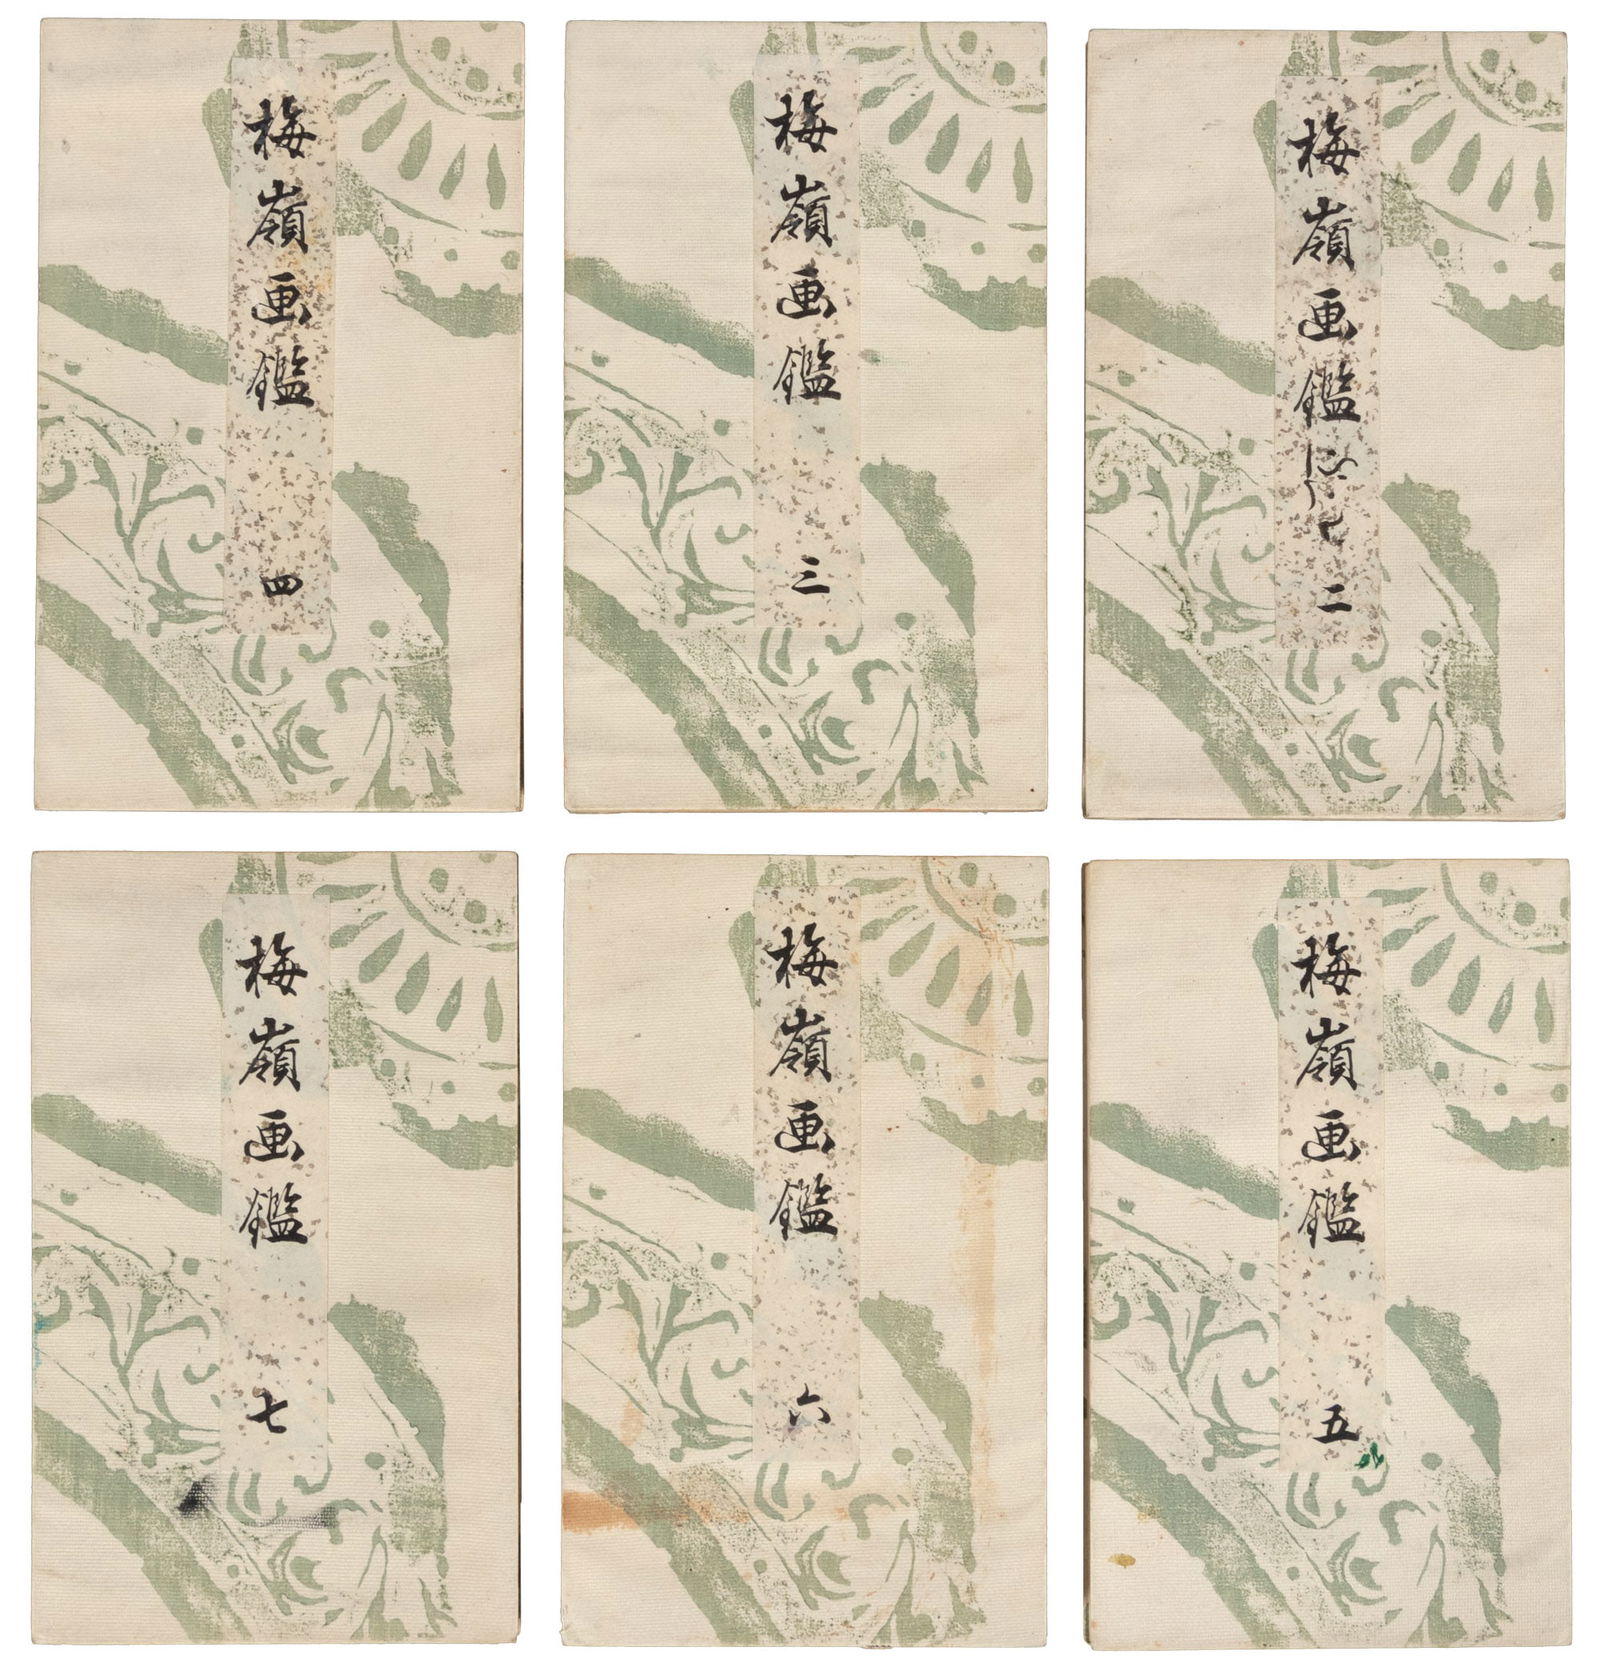 梅嶺画鑑 四
梅嶺画鑑 三
梅嶺画鑑 二
梅嶺画鑑 七
梅嶺画鑑 六
梅嶺画鑑 五